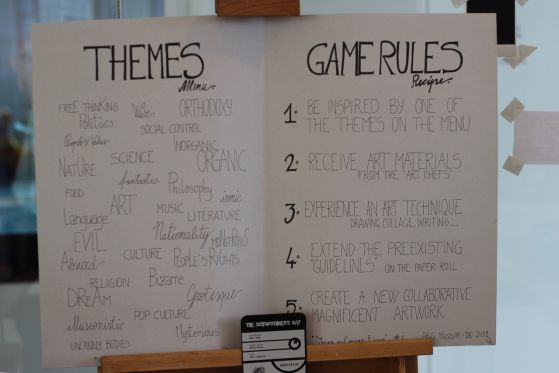 THEMES
Menu
FREE THINKING
Politics
Vibes
ORTHODOXY
SOCIAL CONTROL
People's Values
INORGANIC
NATURE
SCIENCE
ORGANIC
fantastic
Philosophy
FOOD
ironic
ART
MUSIC
Language
LITERATURE
EVIL
Nationality
MONSTROUS
Abroad
CULTURE
PEOPLE'S RIGHTS
RELIGION
Bizarre
DREAM
Grotesque
POP CULTURE
illusionistic
Mysterious
UNCANNY BODIES
GAME RULES
Recipe
1. BE INSPIRED BY ONE OF
THE THEMES ON THE MENU
2. RECEIVE ART MATERIALS
FROM THE "ART CHEFS"
3. EXPERIENCE AN ART TECHNIQUE
DRAWING, COLLAGE, WRITING...
4. EXTEND THE PREEXISTING
"GUIDELINES" ON THE PAPER ROLL
5. CREATE A NEW COLLABORATIVE
MAGNIFICENT ARTWORK
MUSEUM